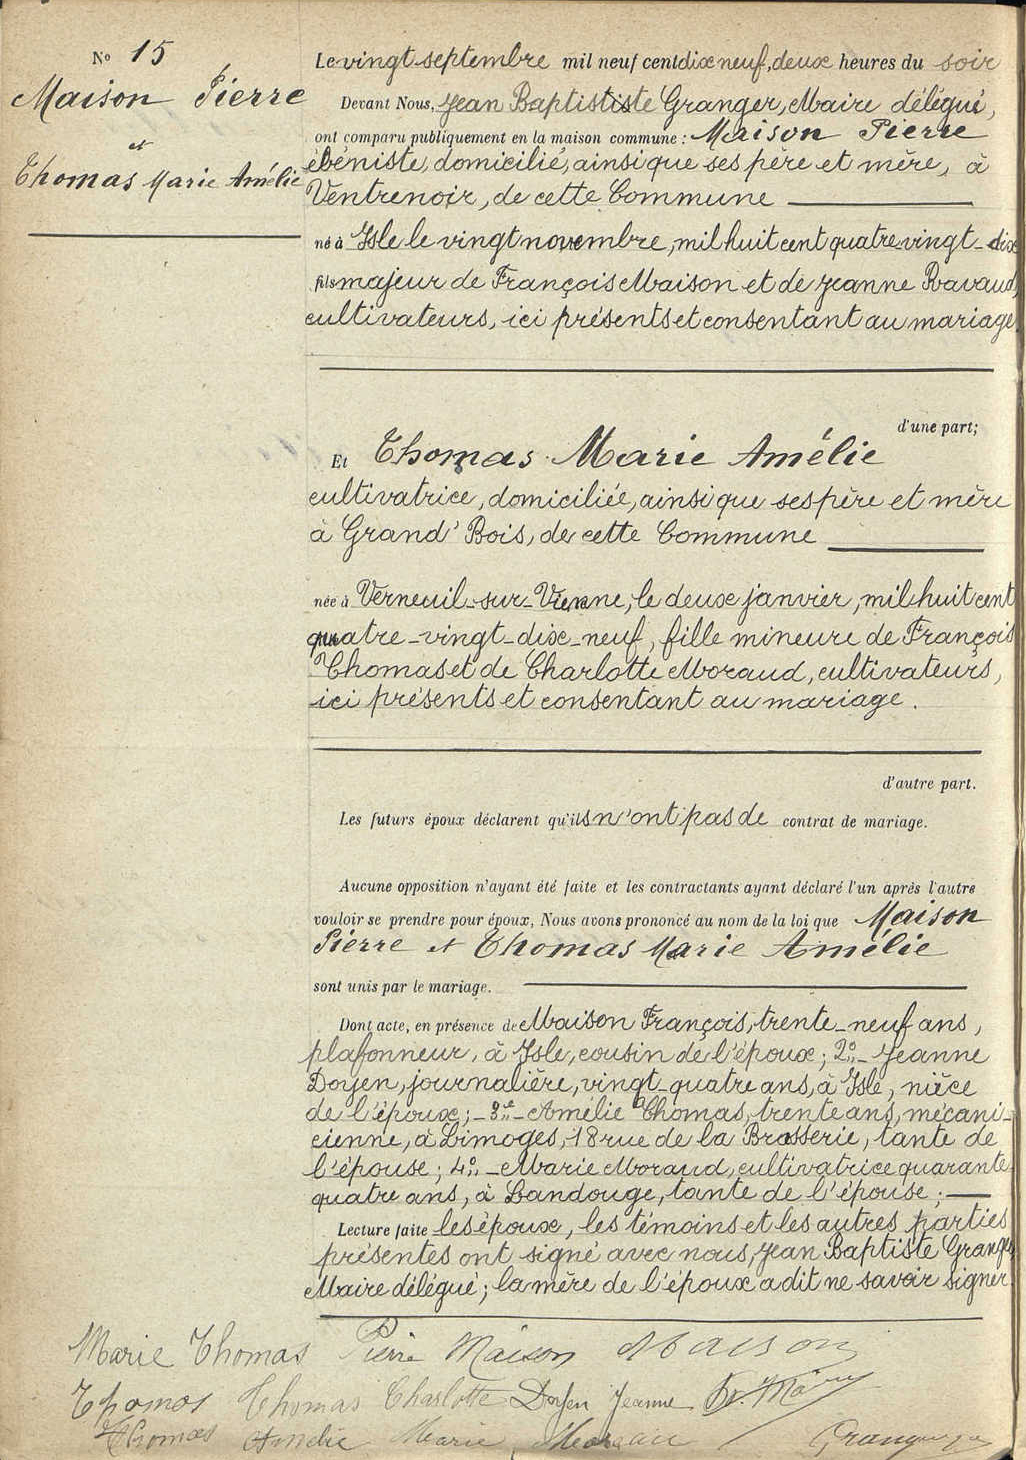 No 15
Maison Pierre
et
Thomas Marie Amélie
Le vingt septembre mil neuf cent dix neuf, deux heures du soir
Devant Nous, Jean Baptististe Granger, Maire délégué,
ont comparu publiquement en la maison commune : Maison Pierre
ébéniste, domicilié, ainsi que ses père et mère, à
Ventrenoir, de cette Commune
né à Isle le vingt novembre, mil huit cent quatre vingt-dix
fils majeur de François Maison et de Jeanne Ravaud,
cultivateurs, ici présents et consentant au mariage
d'une part;
Et Thomas Marie Amélie
cultivatrice, domiciliée, ainsi que ses père et mère
à Grand' Bois, de cette Commune
née à Verneuil-sur-Vienne, le deux janvier, mil huit cent
quatre-vingt-dix-neuf, fille mineure de François
Thomas et de Charlotte Moraud, cultivateurs,
ici présents et consentant au mariage.
d'autre part.
Les futurs époux déclarent qu'ils n'ont pas de contrat de mariage.
Aucune opposition n'ayant été faite et les contractants ayant déclaré l'un après l'autre
vouloir se prendre pour époux, Nous avons prononcé au nom de la loi que Maison
Pierre et Thomas Marie Amélie
sont unis par le mariage.
Dont acte, en présence de Maison François, trente-neuf ans,
plafonneur, à Isle, cousin de l'époux; 2º- Jeanne
Doyen, journalière, vingt-quatre ans, à Isle, nièce
de l'époux;- 3º- Amélie Thomas, trente ans, mécani-
cienne, à Limoges, 18 rue de la Brasserie, tante de
l'épouse; 4º- Marie Moraud, cultivatrice quarante
quatre ans, à Landouge, tante de l'épouse;
Lecture faite les époux, les témoins et les autres parties
présentes ont signé avec nous, Jean Baptiste Granger
Maire délégué; la mère de l'époux a dit ne savoir signer.
Marie Thomas Pierre Maison Maison
Thomas Thomas Charlotte Doyen Jeanne
Thomas Amélie Marie Granger